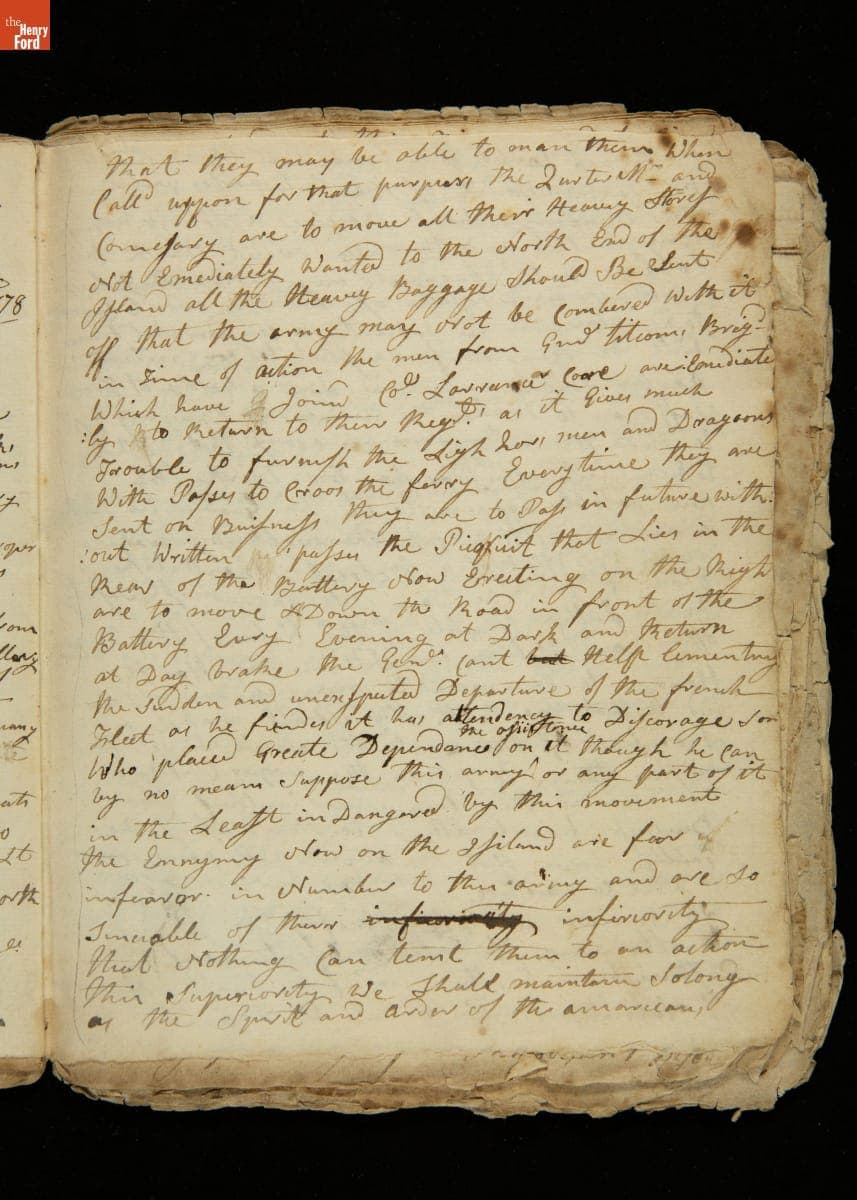 the
Henry
Ford
that they may be able to man them When
Calld uppon for that purpuss the Qurter Mr and
Comessary are to move all their Heavey Stores
Not Emediately Wanted to the North End of the
Island all the Heavey Baggage Should Be Sent
off that the army may Not be Combered With it
in Time of action the men from Genl titcom, Brigd
Which have Joind Col Larrance Core are imediate
:ly to Return to their Regt as it Gives much
Trouble to furnish the Ligh hors men and Dragoons
With Passes to Croos the ferry Everytime they are
Sent on Buisness they are to Pass in future with:
:out Written passes the Picquit that Lies in the
Rear of the Battery Now Erecting on the Righ
are to move Down th Road in front of the
Battery Every Evening at Dark and Return
at Day brake the Genl Cant but Helft lementing
the Sudden and unexspected Departure of the french
Fleet as he findes it has attendency to Discorage Som
the assistance
Who placed Greate Dependance on it though he can
by no means Suppose this army or any part of it
in the Least in Dangered by this movement
the Ennymy Now on the Island are foor
infearor in Number to this army and are So
Sencable of theror infiriority infiriority
that Nothing Can temt them to an action
this Superiority We Shall maintain Solong
as the Spirit and arder of the americans
78